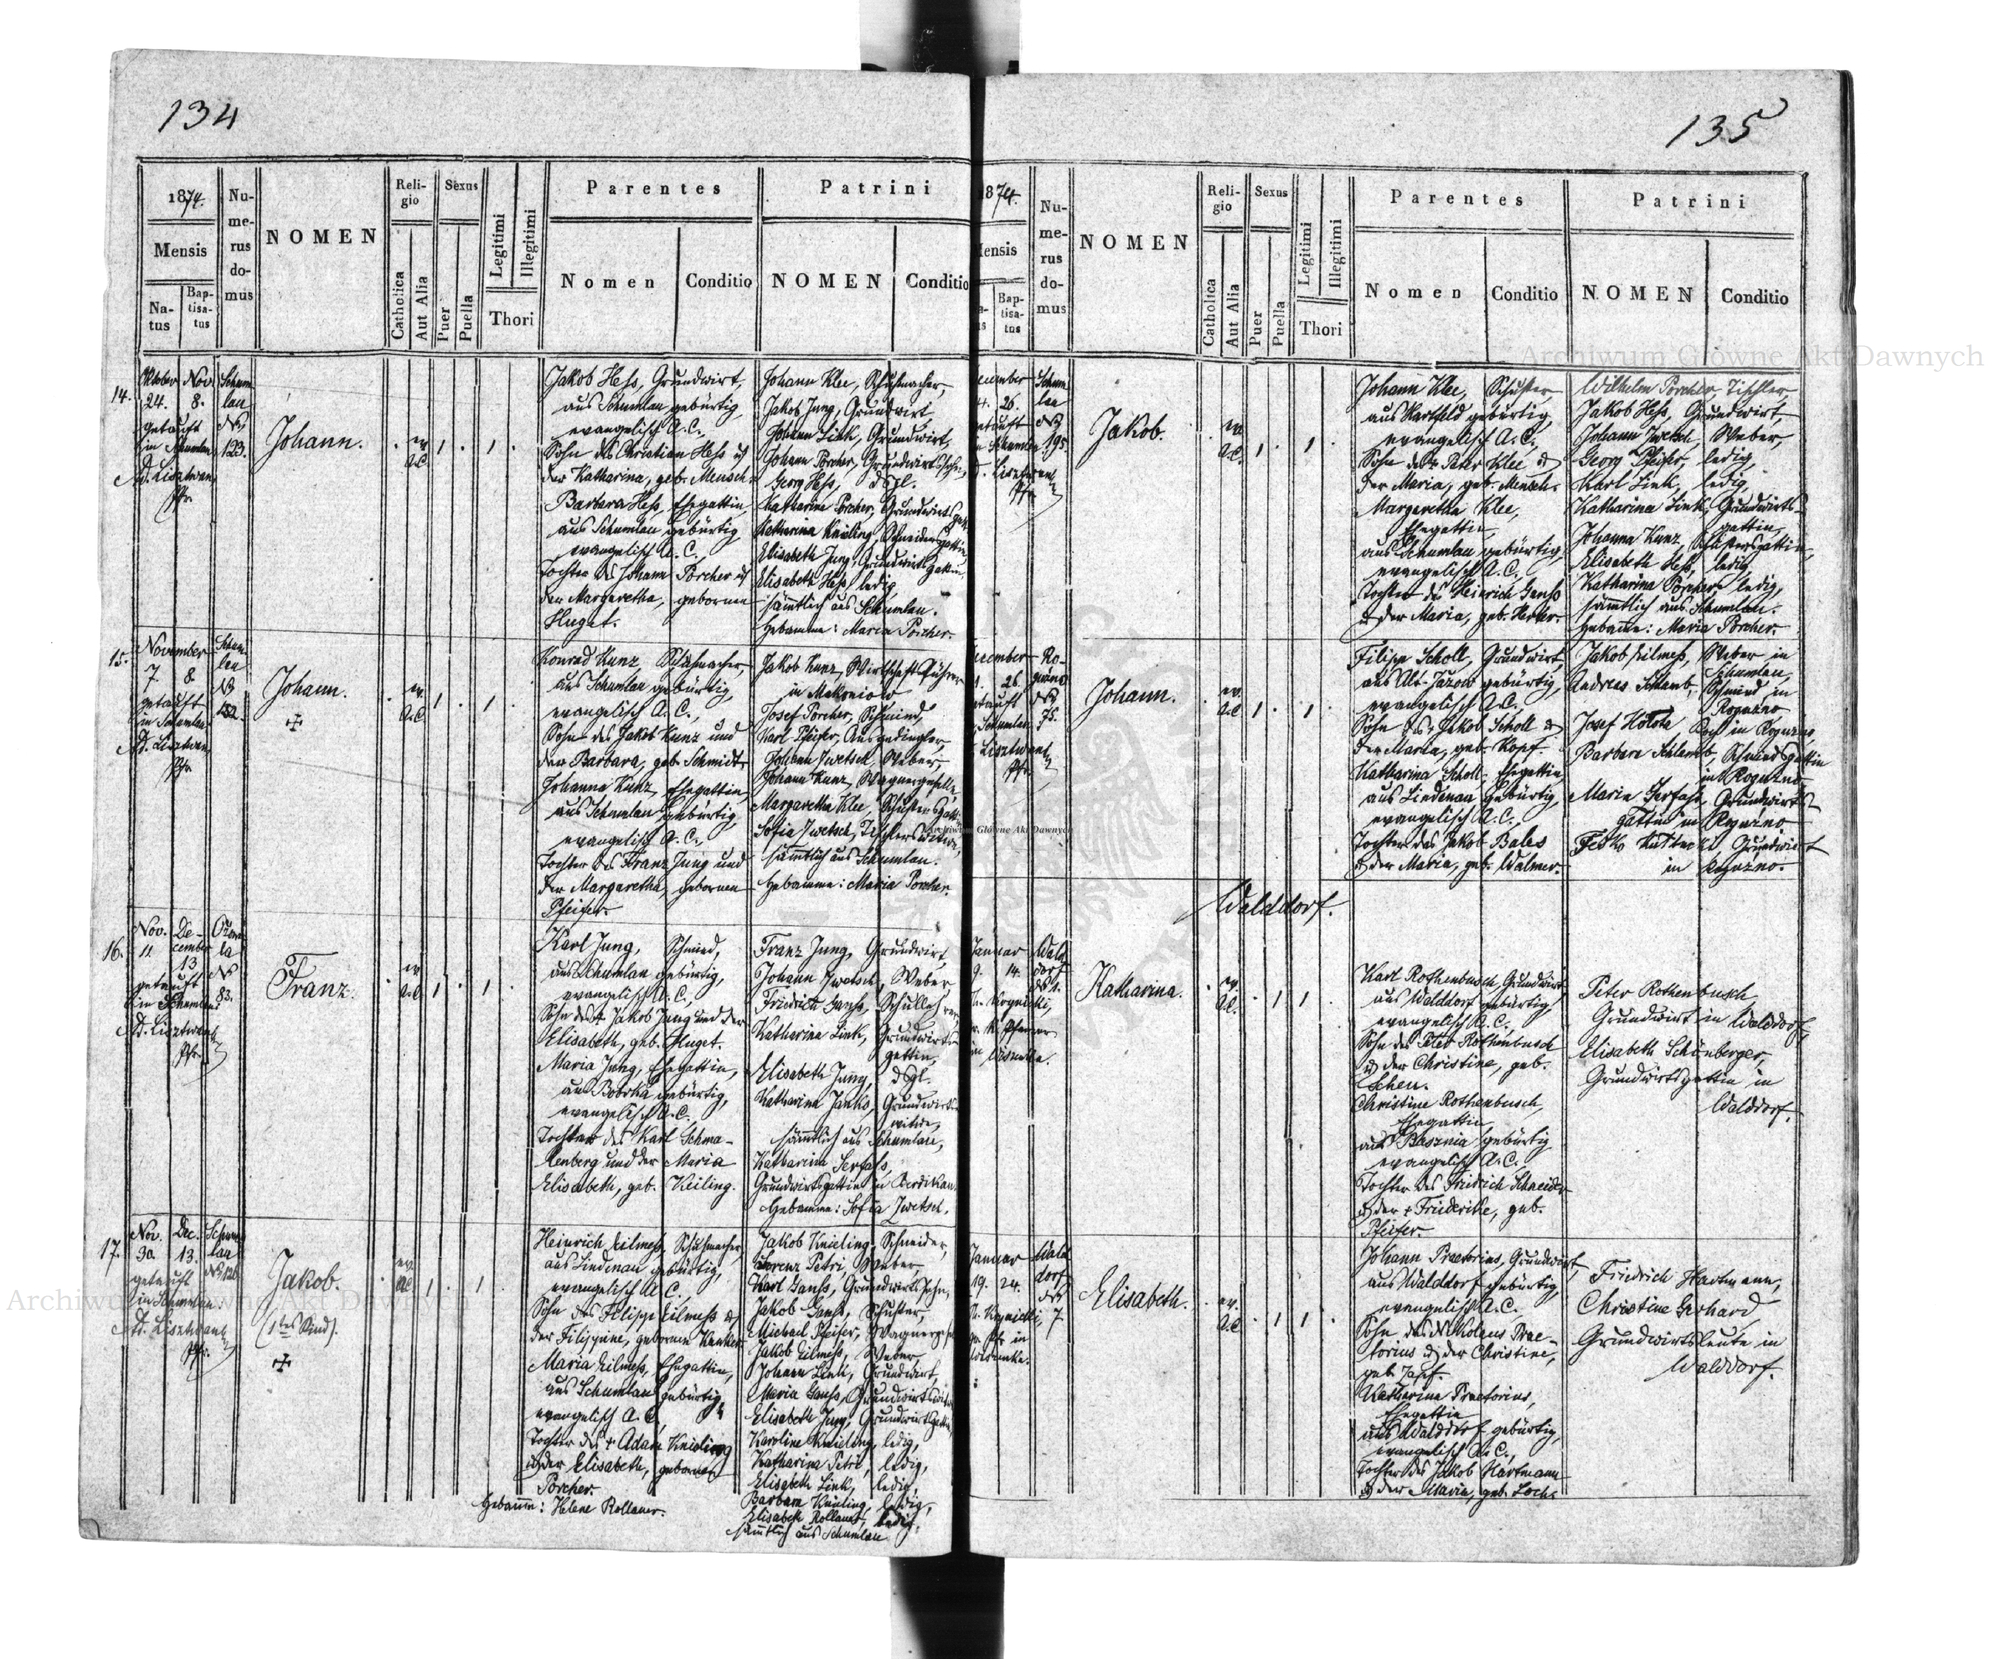 134
1874.
Mensis
Na-
tus
Bap-
tisa-
tus
Nu-
me-
rus
do-
mus
NOMEN
Reli-
gio
Catholica
Aut Alia
Sexus
Puer
Puella
Legitimi
Illegitimi
Thori
Parentes
Nomen
Conditio
Patrini
NOMEN
Conditio
14.
Oktober Nov.
24. 8.
getauft
in Schumlau
A. Lisztwan
Pfr.
Schum
lau
No
123.
Johann.
ev.
A.C.
1
1
Jakob Hess, Grundwirt,
aus Schumlau gebürtig,
evangelisch A.C.,
Sohn des Christian Hess u
der Katharina, geb. Mensch.
Barbara Hess, Ehegattin,
aus Schumlau gebürtig,
evangelisch A.C.,
Tochter des Johann Porcher u
der Margaretha, gebornen
Huget.
Johann Klee, Schuhmacher,
Jakob Jung, Grundwirt,
Johann Link, Grundwirt,
Johann Porcher, Grundwirtssohn,
Georg Hess, dsgl.
Katharina Porcher, Grundwirtsgatt.
Katharina Knieling, Schneidersgattin,
Elisabeth Jung, Grundwirtsgattin,
Elisabeth Hess, ledig,
sämtlich aus Schumlau.
Hebamme: Maria Porcher.
15.
November
7. 8.
getauft
in Schumlau
A. Lisztwan
Pfr.
Schum-
lau
No
Johann.
ev.
A.C.
1
1
Konrad Kunz, Schuhmacher,
aus Schumlau gebürtig,
evangelisch A.C.,
Sohn des Jakob Kunz und
der Barbara, geb. Schmidt.
Johanna Kunz, Ehegattin,
aus Schumlau gebürtig,
evangelisch A.C.,
Tochter des Franz Jung und
der Margaretha, gebornen
Pfeifer.
Jakob Kunz, Wirthschaftsführer
in
Josef Porcher, Schmied,
Karl Pfeifer, Ausgedingler,
Johann Zwetsch, Weber,
Johann Kunz, Wagnergeselle,
Margaretha Klee, Schustersgatt.
Sofia Zwetsch, Tischlerswitwe,
sämtlich aus Schumlau.
Hebamme: Maria Porcher.
16.
Nov. De-
11. cember
13
getauft
in Schumlau
A. Lisztwan
Pfr.
la
No
83.
Franz.
ev.
A.C.
1
1
Karl Jung, Schmied,
aus Schumlau gebürtig,
evangelisch A.C.,
Sohn des + Jakob Jung und der
Elisabeth, geb. Huget.
Maria Jung, Ehegattin,
aus Bobrka gebürtig,
evangelisch A.C.,
Tochter des Karl Schma-
lenberg und der Maria
Elisabeth, geb. Keiling.
Franz Jung, Grundwirt,
Johann Zwetsch, Weber
Friedrich Ganss, Schullehrer,
Katharina Link, Grundwirts-
gattin,
Elisabeth Jung, dsgl.
Katharina Janks, Grundwirts-
witwe,
sämtlich aus Schumlau,
Katharina Serfass,
Grundwirtsgattin in
Hebamme: Sofia Zwetsch.
17.
Nov. Dec.
30. 13.
getauft
in Schumlau
A. Lisztwan
Pfr.
Schum
lau
No 126.
Jakob.
(1tes Kind).
ev.
A.C.
1
1
Heinrich Eilmess, Schuhmacher,
aus Lindenau gebürtig,
evangelisch A.C.,
Sohn des Filipp Eilmess u
der Filippine, gebornen
Maria Eilmess, Ehegattin,
aus Schumlau gebürtig,
evangelisch A.C.,
Tochter des + Adam Knieling
u der Elisabeth, gebornen
Porcher.
Hebamme: Helene Rollauer.
Jakob Knieling, Schneider,
Lorenz Petri, Weber,
Karl Ganss, Grundwirtssohn,
Jakob Ganss, Schuster,
Michael Pfeifer,
Jakob Eilmess, Weber,
Johann Link, Grundwirt,
Maria Ganss, Grundwirtswitwe
Elisabeth Jung, Grundwirtsgattin,
Karoline Knieling, ledig,
Katharina Petri, ledig,
Elisabeth Link, ledig,
Barbara Knieling, ledig,
Elisabeth Rollauer, ledig,
sämtlich aus Schumlau
135
1874.
Mensis
Bap-
tisa-
tus
Nu-
me-
rus
do-
mus
NOMEN
Reli-
gio
Catholica
Aut Alia
Sexus
Puer
Puella
Legitimi
Illegitimi
Thori
Parentes
Nomen
Conditio
Patrini
NOMEN
Conditio
26.
Schum
lau
No
195.
Jakob.
ev.
A.C.
1
1
Johann Klee, Schuster
aus Hartfeld gebürtig,
evangelisch A.C.,
Sohn des + Peter Klee u
der Maria, geb. Mensch.
Margaretha Klee,
Ehegattin,
aus Schumlau gebürtig,
evangelisch A.C.,
Tochter des Heinrich Ganss
u der Maria, geb.
Wilhelm Porcher, Tischler,
Jakob Hess, Grundwirt,
Johann Zwetsch, Weber,
Georg Pfeifer, ledig,
Karl Link, ledig,
Katharina Link, Grundwirts-
gattin,
Johanna Kunz, Schustersgattin,
Elisabeth Hess, ledig
Katharina Porcher, ledig,
sämmtlich aus Schumlau.
Hebamme: Maria Porcher.
26.
Ro-
guzno
No
75.
Johann.
ev.
A.C.
1
1
Filipp Scholl, Grundwirt,
aus Alt-Jazow gebürtig,
evangelisch A.C.,
Sohn des + Jakob Scholl u
der Maria, geb. Kopf.
Katharina Scholl, Ehegattin,
aus Lindenau gebürtig,
evangelisch A.C.,
Tochter des Jakob Bales
u der Maria, geb. Walmer.
Jakob Eilmess, Weber in
Schumlau,
Andreas Schlamb, Schmied in
Roguzno
Josef Holota Koch in Roguzno,
Barbara Schlamb, Schmiedsgattin
in Roguzno
Maria Serfass, Grundwirts-
gattin in Roguzno
Grundwirt
in Roguzno.
Walddorf.
Januar
9. 14.
Wald
dorf
Katharina.
ev.
A.C.
1
1
Karl Rothenbusch, Grundwirt,
aus Walddorf gebürtig,
evangelisch A.C.,
Sohn des Peter Rothenbusch
u der Christine, geb.
Schen.
Christine Rothenbusch,
Ehegattin,
aus Basznia gebürtig
evangelisch A.C.,
Tochter des Friedrich Schneider
u der + Friederike, geb.
Pfeifer.
Peter Rothenbusch,
Grundwirt in Walddorf,
Elisabeth Schönberger,
Grundwirtsgattin in
Walddorf.
Januar
19. 24.
Wald
dorf
No
7.
Elisabeth.
ev.
A.C.
1
1
Johann Praetorius, Grundwirt,
aus Walddorf gebürtig,
evangelisch A.C.
Sohn des Nikolaus Prae-
torius u der Christine,
geb. Zapf.
Katharina Praetorius,
Ehegattin
aus Walddorf gebürtig,
evangelisch A.C.,
Tochter des Jakob Hartmann
u der Maria, geb. Loch.
Friedrich Hartmann,
Christine Gerhard,
Grundwirtsleute in
Walddorf.
Archiwum Główne Akt Dawnych
Archiwum Główne Akt Dawnych
Archiwum Główne Akt Dawnych